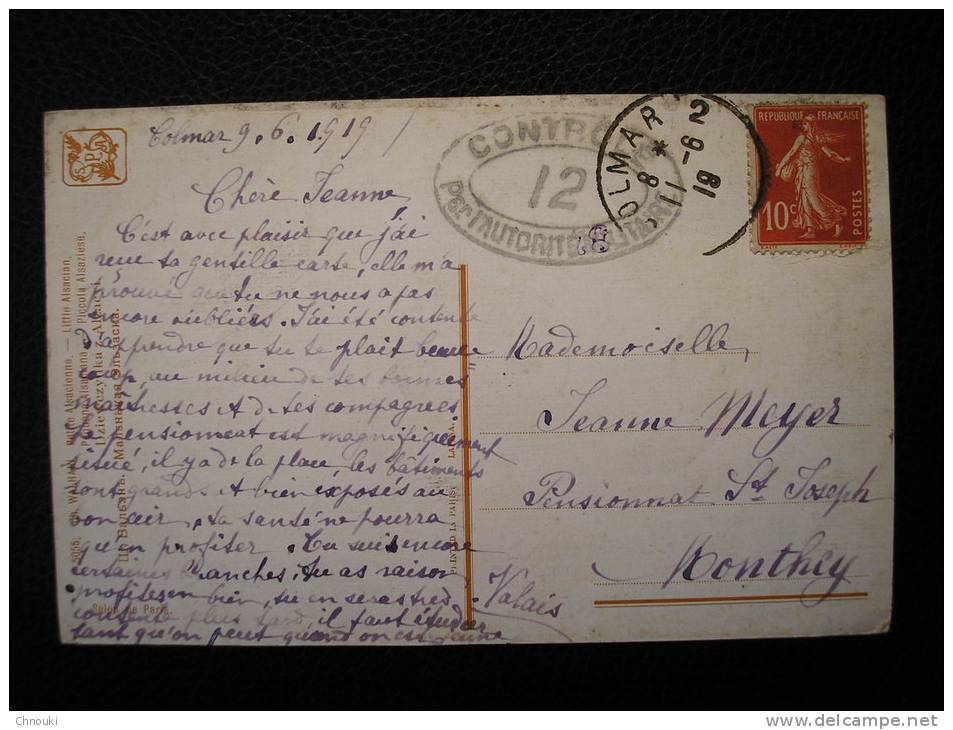 Colmar 9.6.1919
Chère Jeanne
C'est avec plaisir que j'ai
reçue ta gentille carte, elle m'a
prouvé que tu ne nous a pas
encore oubliés. J'ai été contente
d'apprendre que tu te plait beau=
coup, au milieu de tes bonnes
maîtresses et de tes compagnes
Le pensionnat est magnifiquement
situé, il y a de la place, les bâtiments
sont grands et bien exposés au
bon air, ta santé ne pourra
qu'en profiter. Tu suis encore
certaines branches, tu as raison
profites en bien, tu en seras très
contente plus tard, il faut étudier
tant qu'on peut quand on est jeune
CONTRÔLE
12
Par l'AUTORITÉ MILITAIRE
COLMAR
2
8 * 11-6
19
REPUBLIQUE FRANÇAISE
10c
POSTES
Mademoiselle,
Jeanne Meyer
Pensionnat St Joseph
Monthey
Valais
SPA
WALHAIN. Petite Alsacienne. — Little Alsacian.
Piccola Alsaziese.
Dziewczynka z Alzacyi.
Salon de Paris.
PRINTED IN PARIS
Chnouki
www.delcampe.net